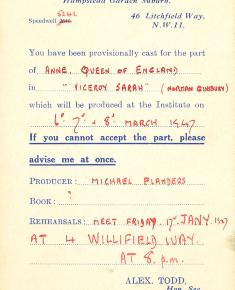 Hampstead Garden Suburb.
5242
Speedwell
46 Litchfield Way,
N.W.11.
You have been provisionally cast for the part
of ANNE, QUEEN OF ENGLAND
in "VICEROY SARAH" (NORMAN GINSBURY)
which will be produced at the Institute on
6th 7th & 8th MARCH 1947
If you cannot accept the part, please
advise me at once.
PRODUCER: MICHAEL FLANDERS
BOOK: ?
REHEARSALS: MEET FRIDAY 17th JANY. 1947
AT 4 WILLIFIELD WAY.
AT 8 p.m.
ALEX. TODD,
Hon. Sec.